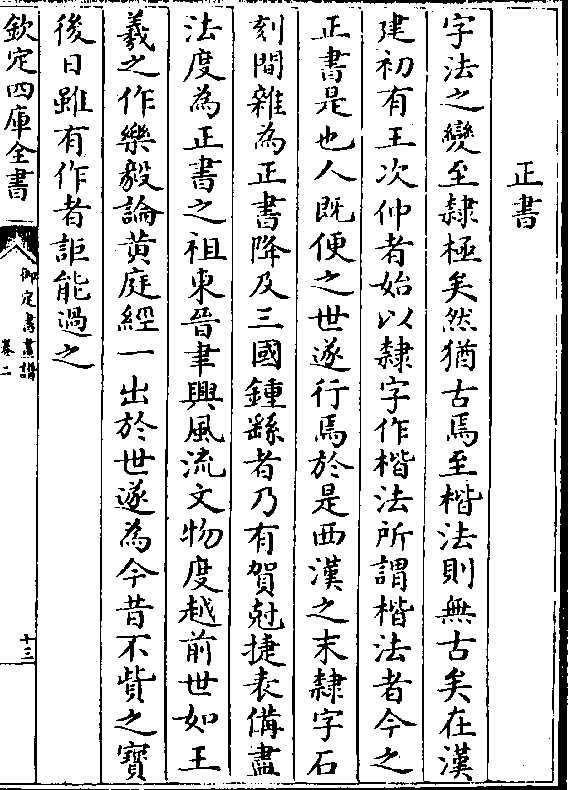 正書
字法之變至隷極矣然猶古焉至楷法則無古矣在漢
建初有王次仲者始以隷字作楷法所謂楷法者今之
正書是也人既便之世遂行焉於是西漢之末隷字石
刻間雜為正書降及三國鍾繇者乃有賀尅捷表備盡
法度為正書之祖東晉聿興風流文物度越前世如王
羲之作樂毅論黄庭經一出於世遂為今昔不貲之寳
後日雖有作者詎能過之
欽定四庫全書
御定書畫譜
卷二
十三